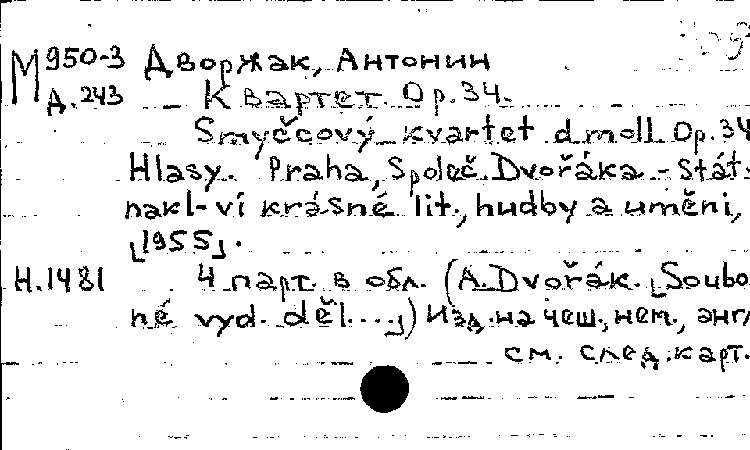 М 950-3 Дворжак, Антонин
Д.243 Квартет. Op.34.
Smyčcový kvartet d moll Op.34
Hlasy. Praha, Společ. Dvořáka - Stát.
nakl-ví krásné lit., hudby a uměni,
[1955].
Н.1481 4 парт. в обл. (A.Dvořák. [Soubo
né vyd. děl....]) Изд. на чеш., нем., англ
см. след. карт.